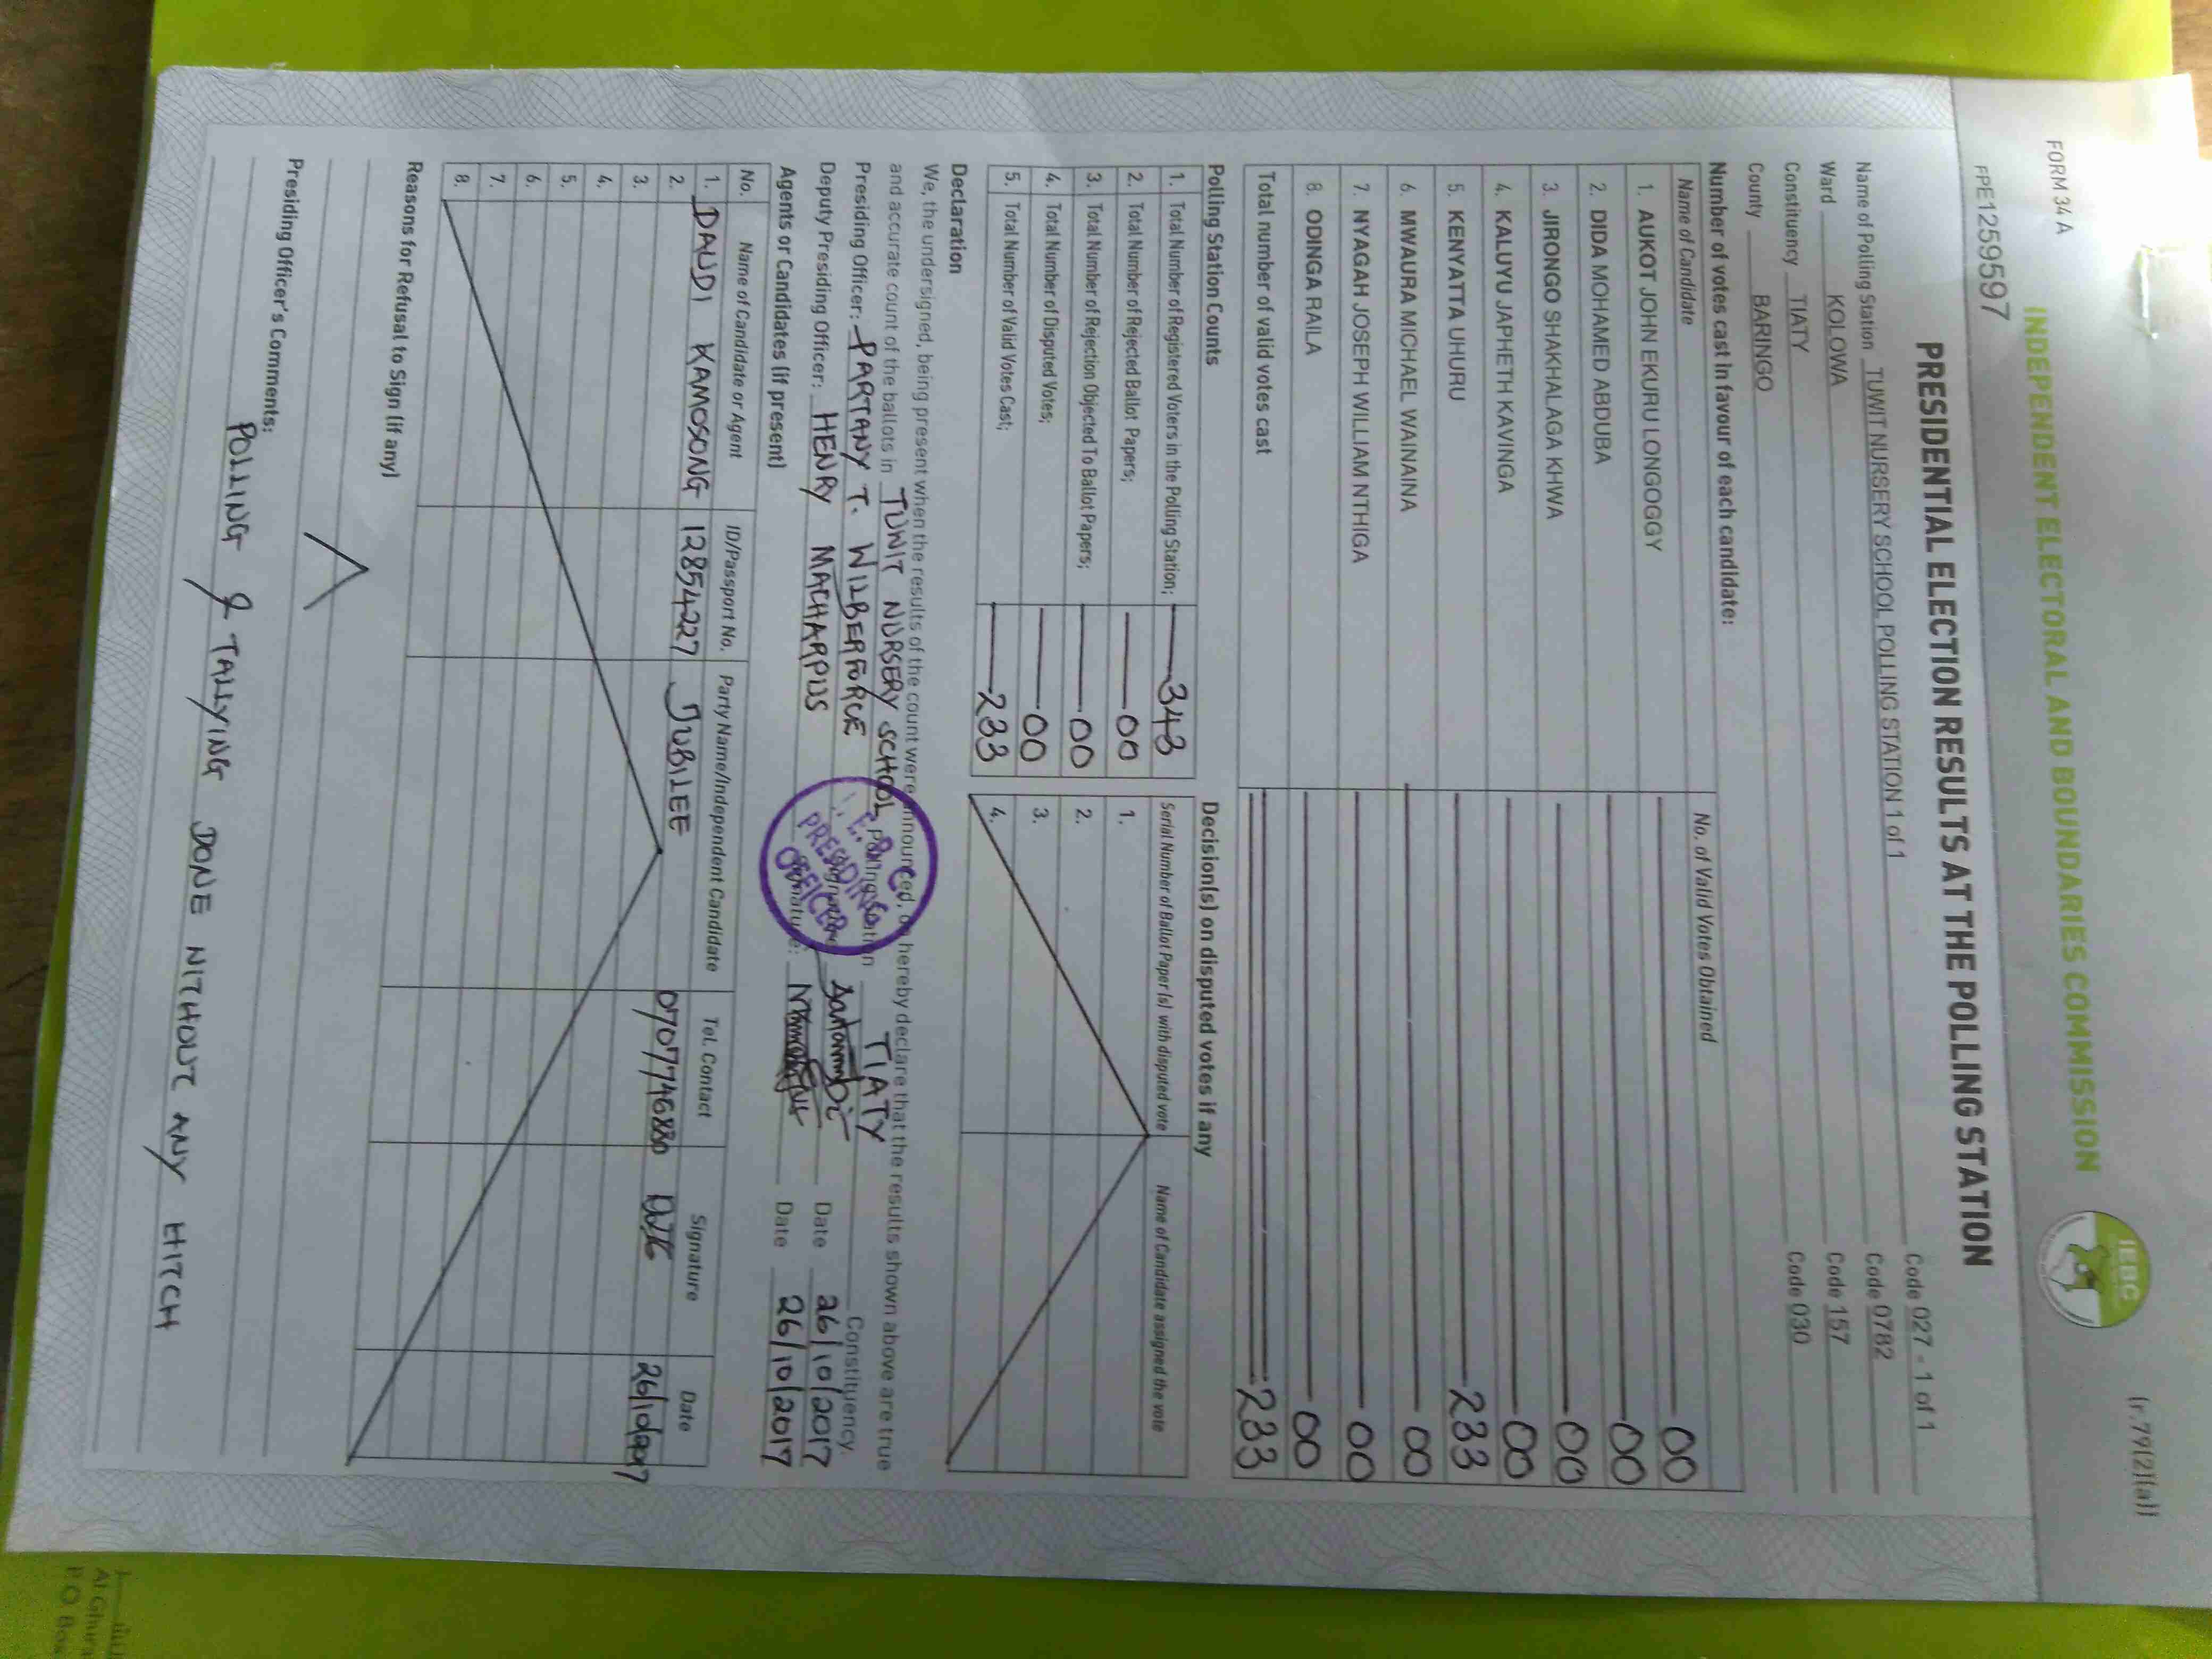 FORM 34 A
(r.79(2)(a))
INDEPENDENT ELECTORAL AND BOUNDARIES COMMISSION
IEBC
FPE1259597
PRESIDENTIAL ELECTION RESULTS AT THE POLLING STATION
Name of Polling Station TUWIT NURSERY SCHOOL POLLING STATION 1 of 1 Code 027 - 1 of 1
Ward KOLOWA Code 0782
Constituency TIATY Code 157
County BARINGO Code 030
Number of votes cast in favour of each candidate:
Name of Candidate No. of Valid Votes Obtained
1. AUKOT JOHN EKURU LONGOGGY 00
2. DIDA MOHAMED ABDUBA 00
3. JIRONGO SHAKHALAGA KHWA 00
4. KALUYU JAPHETH KAVINGA 00
5. KENYATTA UHURU 233
6. MWAURA MICHAEL WAINAINA 00
7. NYAGAH JOSEPH WILLIAM NTHIGA 00
8. ODINGA RAILA 00
Total number of valid votes cast 233
Polling Station Counts
1. Total Number of Registered Voters in the Polling Station; 343
2. Total Number of Rejected Ballot Papers; 00
3. Total Number of Rejection Objected To Ballot Papers; 00
4. Total Number of Disputed Votes; 00
5. Total Number of Valid Votes Cast; 233
Decision(s) on disputed votes if any
Serial Number of Ballot Paper(s) with disputed vote Name of Candidate assigned the vote
1.
2.
3.
4.
Declaration
We, the undersigned, being present when the results of the count were announced, do hereby declare that the results shown above are true
and accurate count of the ballots in TUWIT NURSERY SCHOOL Polling Station TIATY Constituency.
Presiding Officer: PARTANY T. WILBERFORCE Date 26/10/2017
Deputy Presiding Officer: HENRY MACHARPUS Signature: Date 26/10/2017
PRESIDING
OFFICER
Agents or Candidates (if present)
No. Name of Candidate or Agent ID/Passport No. Party Name/Independent Candidate Tel. Contact Signature Date
1. DAUDI KAMOSONG 12854227 JUBILEE 0707746880 26/10/2017
2.
3.
4.
5.
6.
7.
8.
Reasons for Refusal to Sign (if any)
Presiding Officer's Comments:
POLLING & TALLYING DONE WITHOUT ANY HITCH
P.O. Box